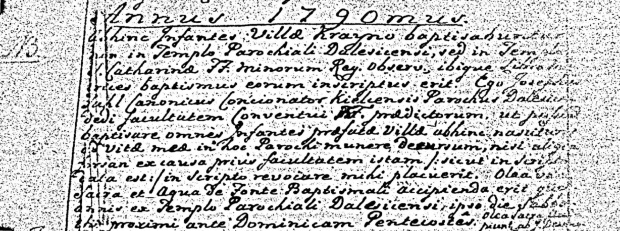 Annus 1790mus.
NB.
abhinc Infantes Villæ Krayno baptisabuntur
non in Templo Parochiali Dalesicensi, sed in Templo
S. Catharinæ FF. Minorum Reg. Observ., ibique Libro
baptismus eorum inscriptus erit. Ego Josephus
Canonicus Concionator Kielcensis Parochus Dalesicen
dedi facultatem Conventui prædictorum, ut possint
baptisare omnes Infantes præfatæ Villæ abhinc nascituros
vitæ meæ in hoc Parochi munere decursum, nisi aliqua
ex causa prius facultatem istam, sicut in script
data est, in scripto revocare mihi placuerit. Olea
sacra et Aqua de Fonte Baptismali accipienda erit
annis ex Templo Parochiali Dalesicensi ipso die Sabba
thi proximi ante Dominicam Pentecostes. Olea sacra